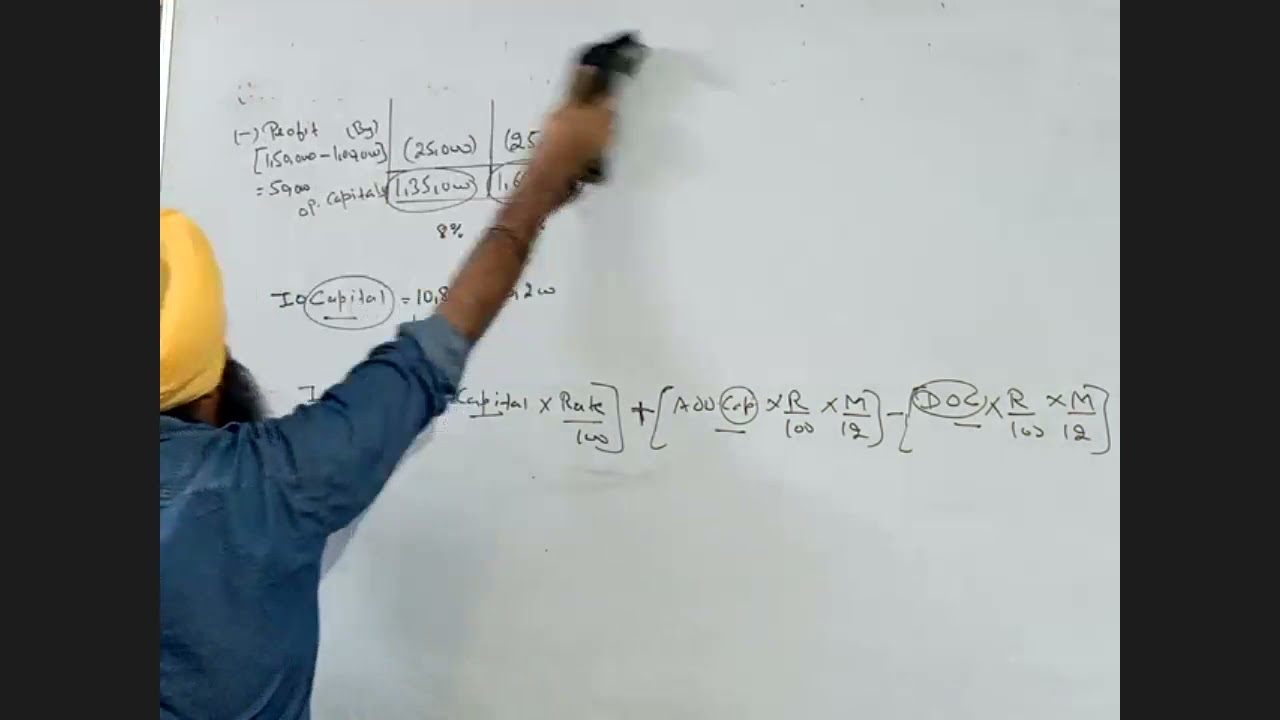 (-) Profit (By) (25,000) (25
[1,50,000 - 1,00,000]
= 50,000
op. Capitals 1,35,000 1,6
8%
IO Capital = 10,8 ,200
Capital × Rate/100] + [ADD Cap × R/100 × M/12] - [DOC × R/100 × M/12]